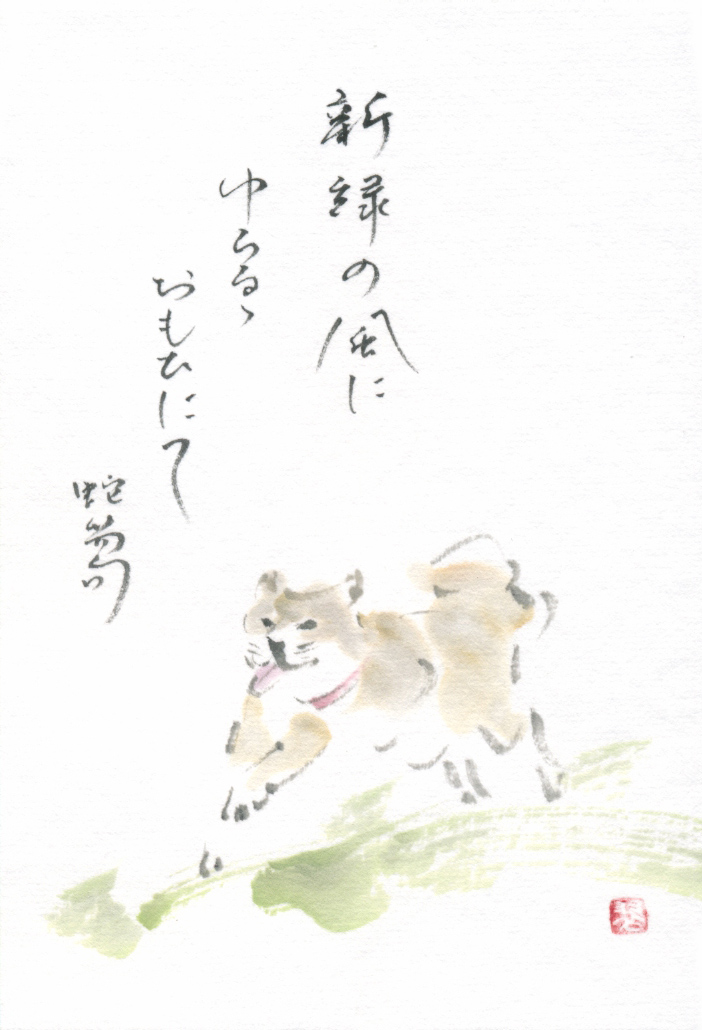 新緑の風に
ゆらるゝ
おもひにて
蛇笏